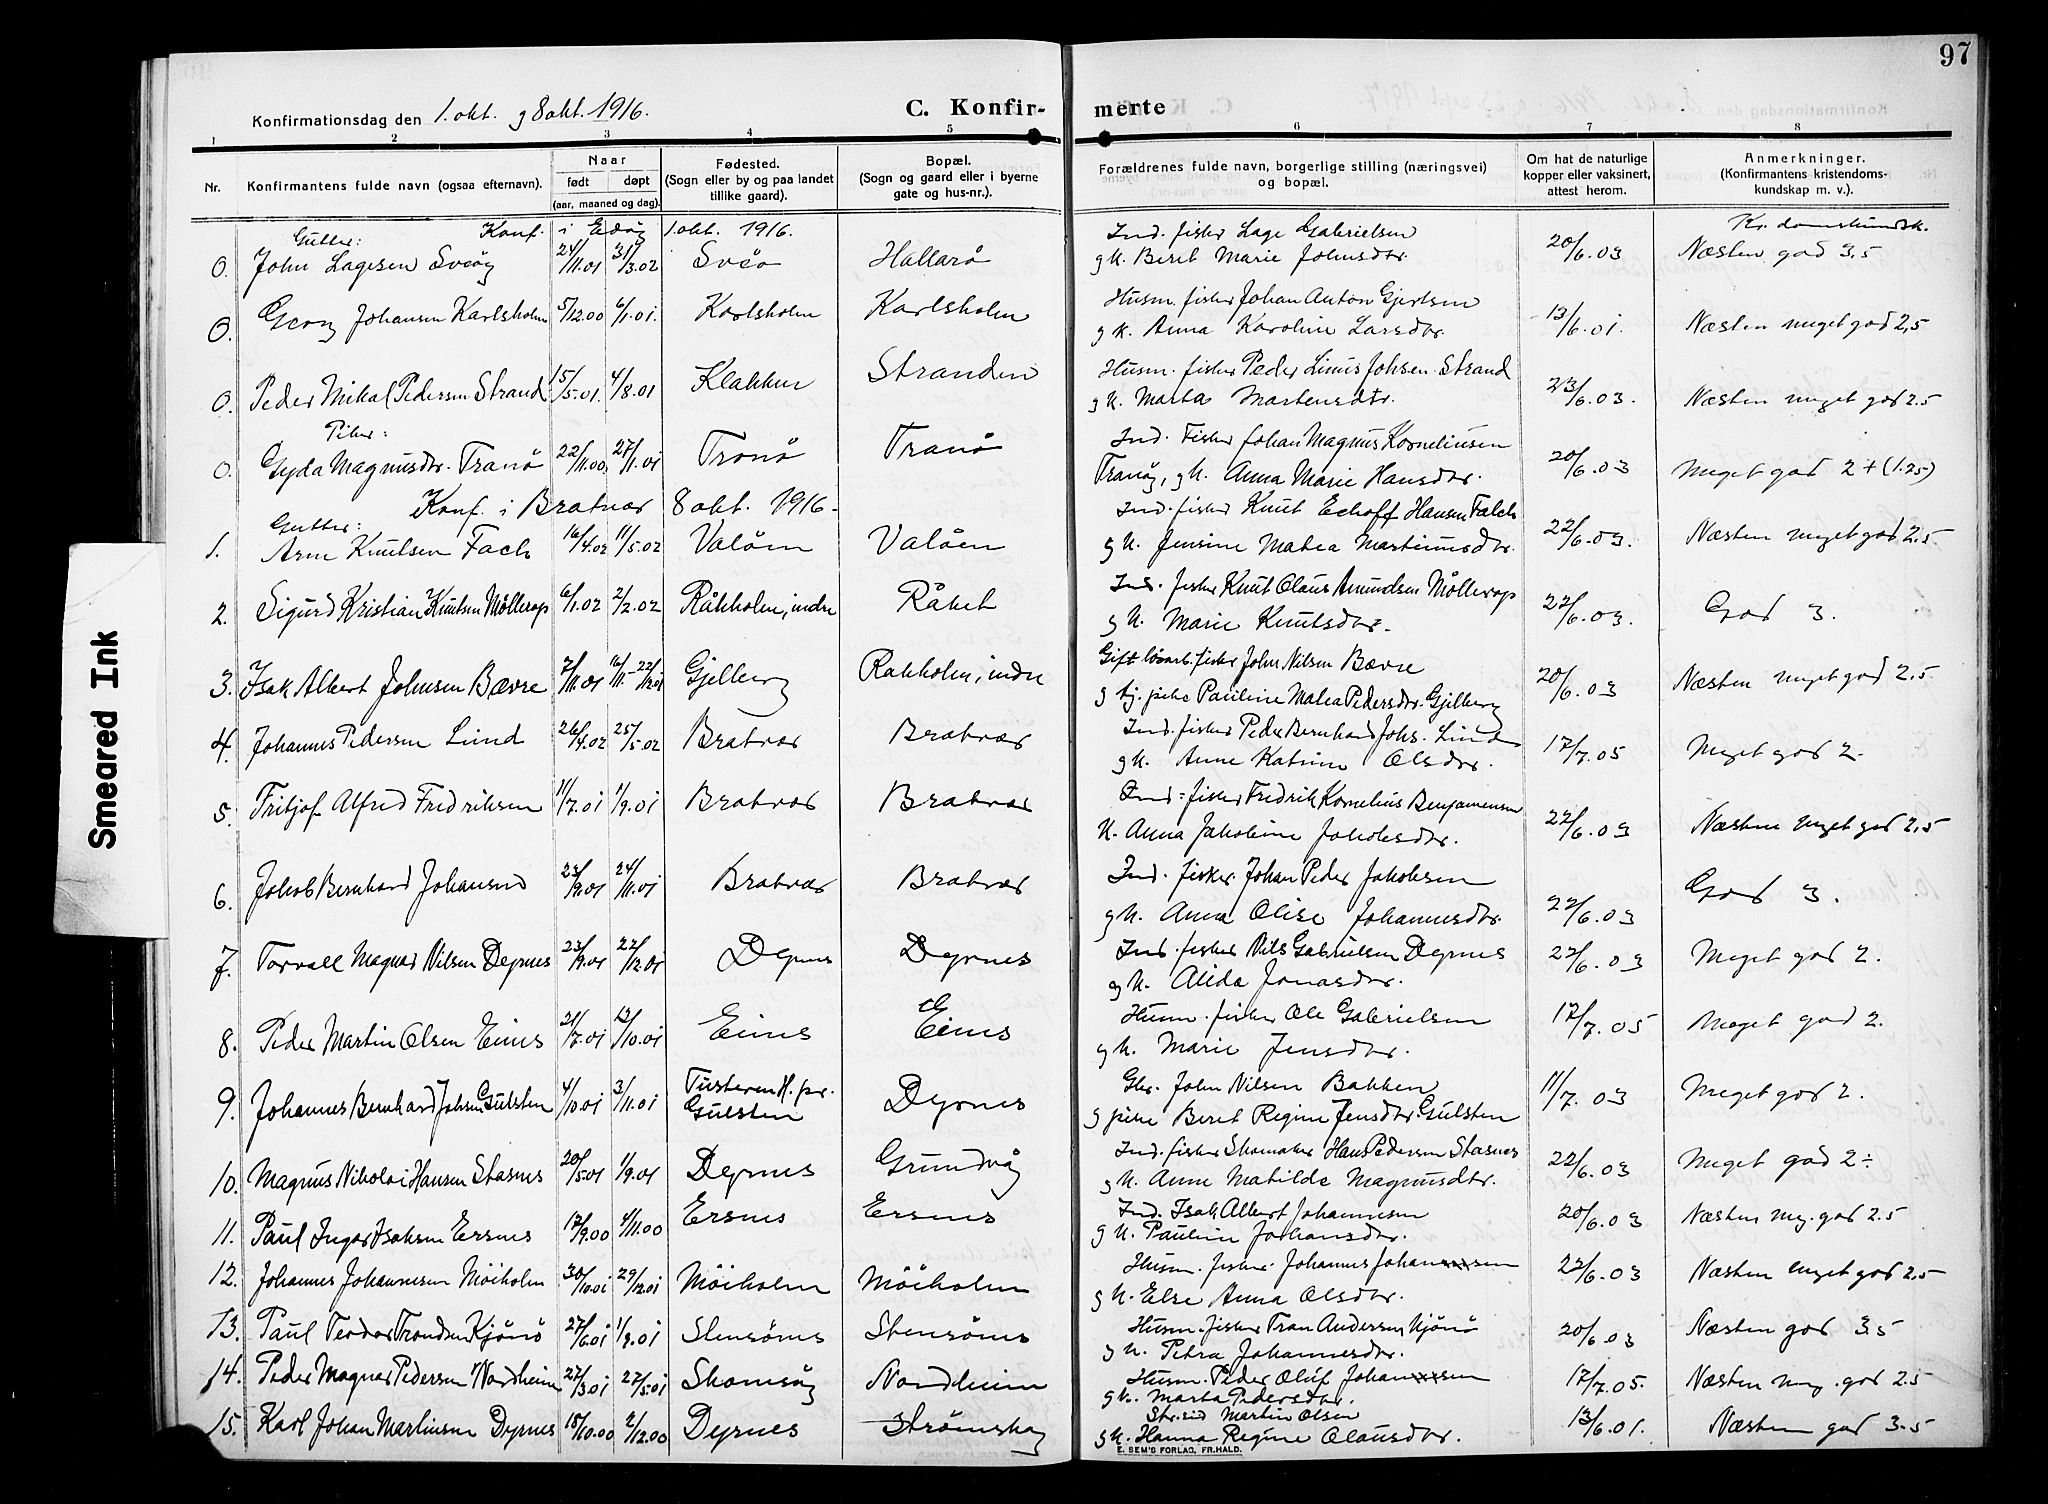 97
Konfirmationsdag den 1. okt. g 8 okt. 1916.
C. Konfir- merte
1 2 3 4 5 6 7 8
Nr.
Konfirmantens fulde navn (ogsaa efternavn).
Naar
født døpt
(aar, maaned og dag).
Fødested.
(Sogn eller by og paa landet
tillike gaard).
Bopæl.
(Sogn og gaard eller i byerne
gate og hus-nr.).
Forældrenes fulde navn, borgerlige stilling (næringsvei)
og bopæl.
Om hat de naturlige
kopper eller vaksinert,
attest herom.
Anmerkninger.
(Konfirmantens kristendoms-
kundskap m. v.).
Gutter: Konf. i Edøy 1 okt. 1916. Ind. fisker Lage Gabrielsen Kr. domskundsk.
0. John Lagesen Sveøy 24/11.01 31/3.02 Sveø Hallarø g k. Beret Marie Johnsdtr. 20/6.03 Næsten god 3.5
Husm. fisker Johan Anton Gjertsen
0. Georg Johansen Karlsholm 5/12.00 6/1.01. Karlsholm Karlsholm g k. Anna Karoline Larsdtr. 13/6.01. Næsten meget god 2,5
Husm. fisker Peder Linus Johsen Strand
0. Peder Mikal Pedersen Strand 15/5.01. 4/8.01 Klakken Stranden g k. Marta Martensdtr. 23/6.03. Næsten meget god 2.5
Piker: Ind. Fisker Johan Magnus Korneliusen
0. Gyda Magnusdtr. Tranø 22/11.00 27/1.01 Tranø Tranø Tranøy, g k. Anna Marie Hansdtr. 20/6.03 Meget god 2+ (1.25)
Konf. i Bratvær 8 okt. 1916.
Gutter: Ind. fisker Knut Echoff Hansen Falch
1. Arne Knutsen Fach 16/4.02 11/5.02 Valøen Valøen g k. Jensine Matea Martinusdtr. 22/6.03. Næsten meget god 2.5
Ind. fisker Knut Olaus Amundsen Møllerop
2. Sigurd Kristian Knutsen Møllerop 6/1.02 2/2.02 Råkholm, indre Råket g k. Marie Knutsdtr. 22/6.03. God 3.
Gift løsarb. fisker John Nilsen Bævre
3. Isak Albert Johnsen Bævre 7/11.01 16/11.-22/12.01 Gjelberg Rakholm, indre g tj. pike Pauline Matea Pedersdtr. Gjelberg 20/6.03 Næsten meget god 2.5
Ind. fisker Peder Bernhard Johs. Lund
4. Johannes Pedersen Lund 26/4.02 25/5.02 Bratvær Bratvær g k. Anne Katrine Olsdtr. 17/7.05 Meget god 2.
Ind. fisker Fredrik Kornelius Benjaminsen
5. Fritjof Alfred Fredriksen 11/7.01 1/9.01 Bratvær Bratvær k. Anna Jakobine Jakobsdtr. 22/6.03 Næsten meget god 2,5
Ind. fisker Johan Peder Jakobsen
6. Jakob Bernhard Johansen 23/9.01 24/11.01 Bratvær Bratvær g k. Anna Olise Johannesdtr. 22/6.03 God 3.
Ind. fisker Nils Gabrielsen Dyrnes
7. Torvall Magnar Nilsen Dyrnes 23/9.01 22/12.01 Dyrnes Dyrnes g k. Alida Jonasdtr. 22/6.03 Meget god 2.
Husm. fisker Ole Gabrielsen
8. Peder Martin Olsen Eines 21/7.01 13/10.01 Eines Eines g k. Marie Jensdtr. 17/7.05 Meget god 2.
Gbr. John Nilsen Bakken
9. Johannes Bernhard Johnsen Gulsten 4/10.01 3/11.01 Tusteren H. pr. Gulsten Dyrnes g pike Beret Regine Jensdtr. Gulsten 11/7.03 Meget god 2.
Ind. fisker Skomaker Hans Pedersen Stasnes
10. Magnus Nikolai Hansen Stasnes 20/5.01 1/9.01 Dyrnes Grundvåg g k. Anne Matilde Magnusdtr. 22/6.03 Meget god 2÷
Ind. Isak Albert Johannesen
11. Paul Ingar Isaksen Ersnes 17/9.00 4/11.00 Ersnes Ersnes g k. Pauline Johansdtr. 20/6.03 Næsten meg. god 2.5
Husm. fisker Johannes Johansen
12. Johannes Johannesen Møiholm 30/10.01 29/12.01 Møiholm Møiholm g k. Else Anna Olsdtr. 22/6.03 Næsten meget god 2,5
Husm. fisker Tron Andersen Kjønø
13. Paul Teodor Tronsen Kjønø 27/6.01 1/9.01 Stensønes Stensønes g k. Petra Johannesdtr. 20/6.03 Næsten god 3.5
Husm. Peder Oluf Johansen
14. Peder Magnar Pedersen Nordheim 27/3.01 27/5.01 Skomsøy Nordheim g k. Marta Pedersdtr. 17/7.05. Næsten meg. god 2.5
Str.sid Martin Olsen
15. Karl Johan Martinsen Dyrnes 15/10.00 2/12.00 Dyrnes Strømskag g k. Hanna Regine Olausdtr. 13/6.01. Næsten god 3.5
E. SEM'S FORLAG, FR.HALD.
Smeared Ink